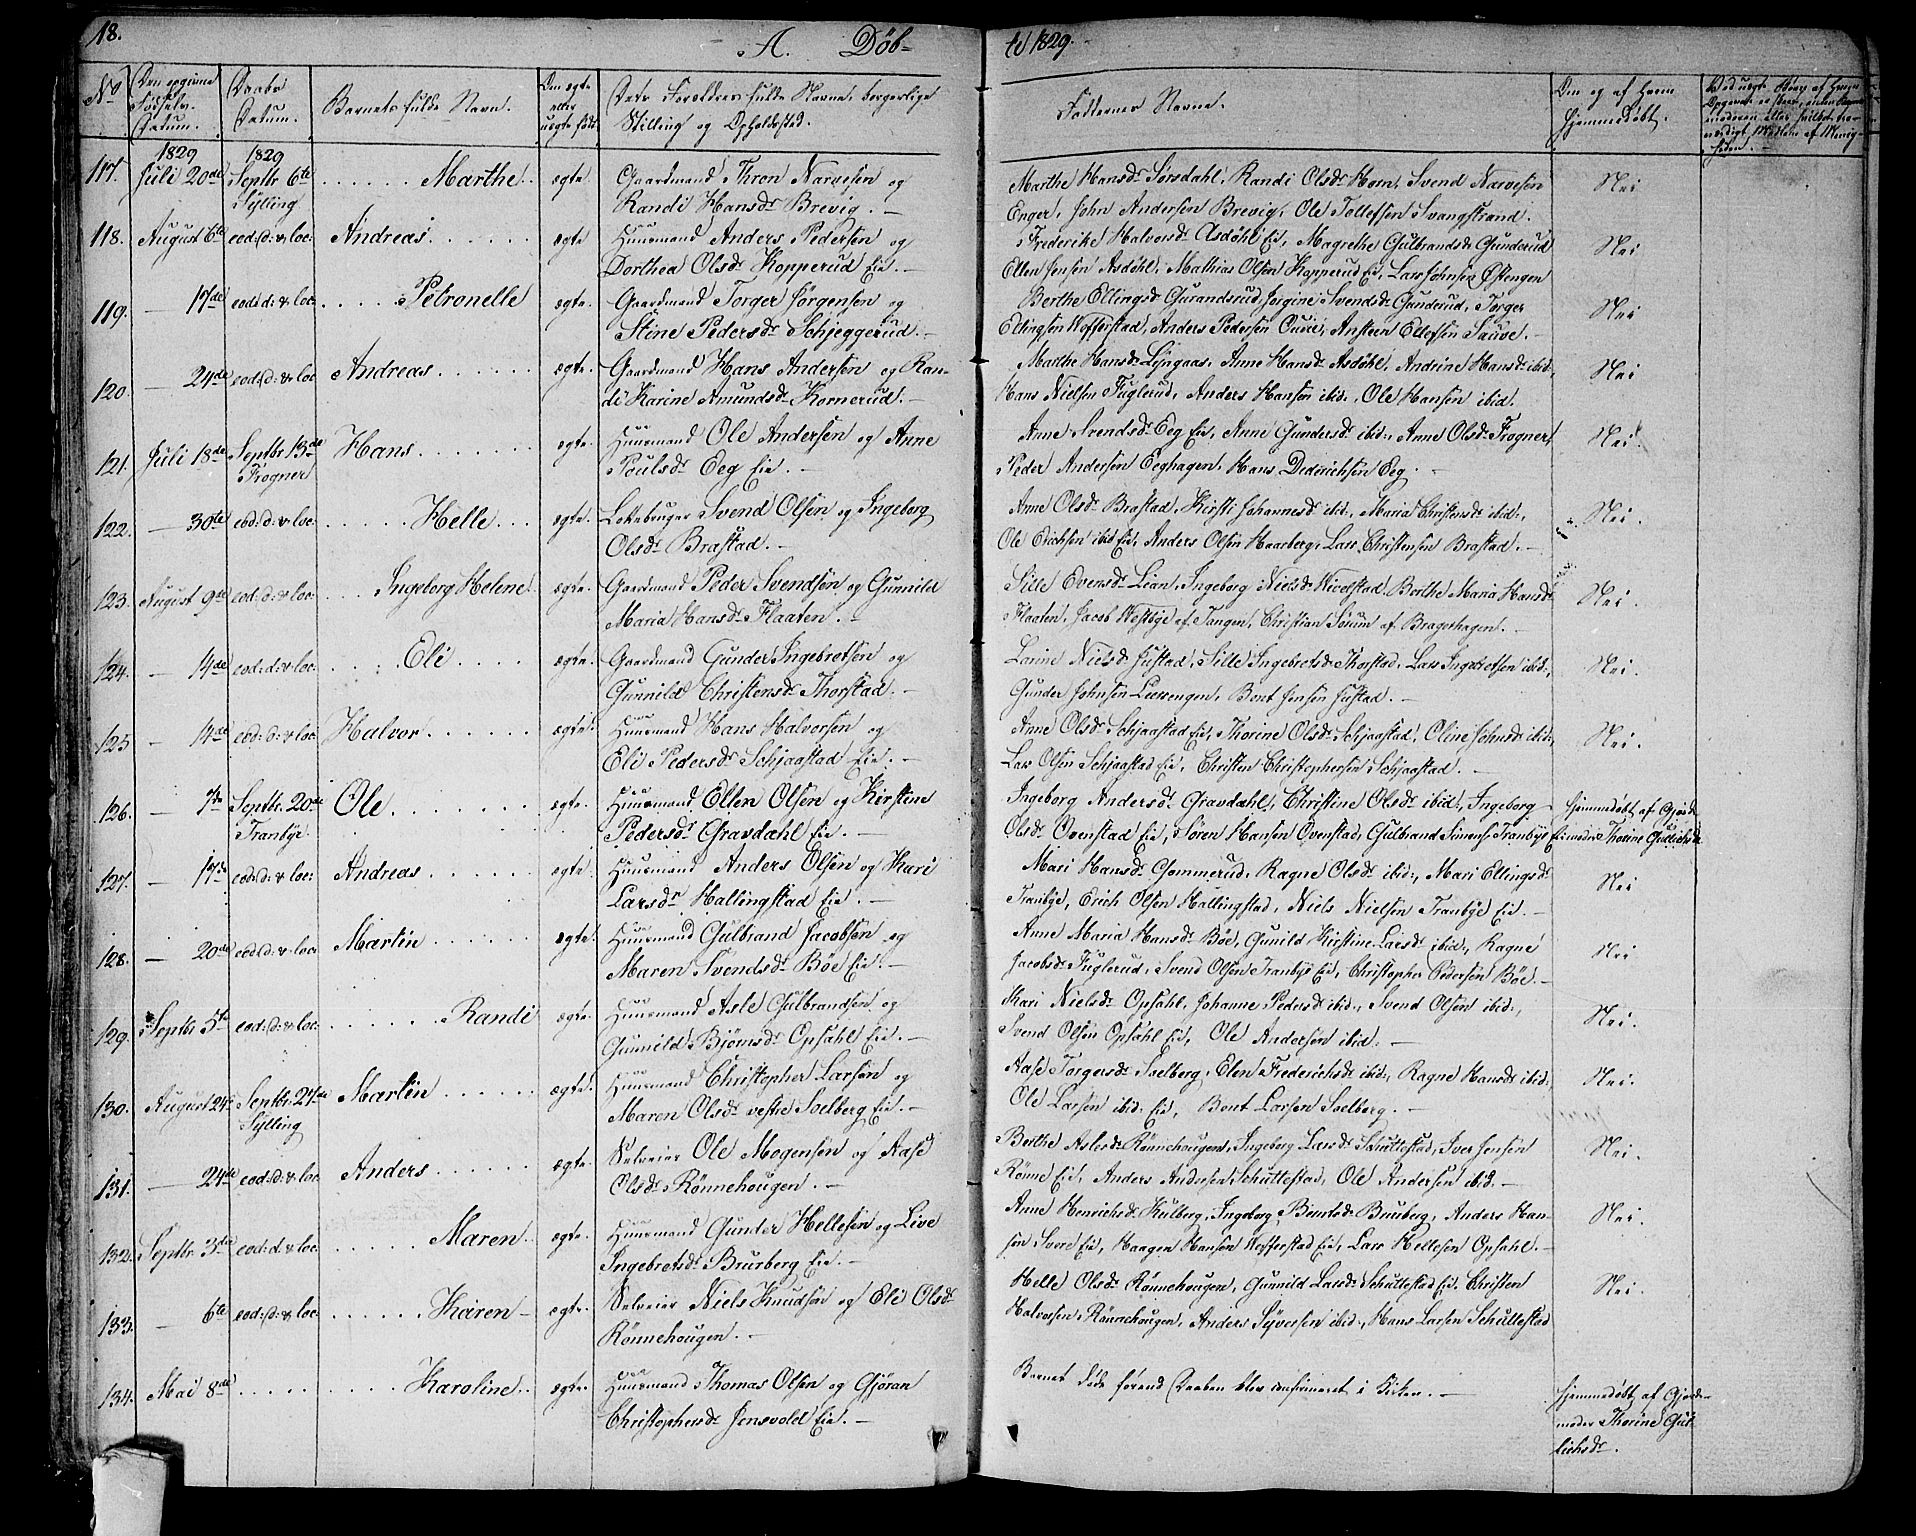 18.
A. Døb-
te 1829.
No
Den egentlige Fødsels Datum.
Daabs Datum.
Barnets fulde Navn.
Om ægte eller uægte født
Dets Forældres fulde Navne, borgerlige Stilling og Opholdssted.
Faddernes Navne.
Om og af hvem hjemmedøbt.
1829 1829
117. Juli 20de Septbr 6te Sylling . . . . . . Marthe . ægte Gaardmand Thron Narvesen og
Randi Hansdr Brevig. —
Marthe Hansdr Sørsdahl, Randi Olsdr Horn, Svend Narvesen
Enger, John Andersen Brevig, Ole Tollefsen Svangstrand. Nei
118. August 6te eod: d: & loc: Andreas . . . . . . ægte Huusmand Anders Pedersen og
Dorthea Olsdr Kopperud Eie. —
Frederike Halvorsdr Asdøhl Eie, Magrethe Gulbrandsdr Gunderud
Ellen Jensen Asdøhl, Mathias Olsen Kopperud Eie, Lars Johnsen Østengen Nei
119. — 17de eod: d: & loc: . . . . . Petronelle ægte. Gaardmand Torger Jørgensen og
Stine Pedersdr Schjeggerud. —
Berthe Ellingsdr Gurandsrud, Jorgine Svendsdr Gunderud, Torger
Ellingsen Wefferstad, Anders Pedersen Ouvie, Ansteen Ellefsen Sauve. Nei
120. — 24de eod: d: & loc Andreas . . . . . . ægte. Gaardmand Hans Andersen og Ran-
di Karine Amundsdr Kornerud. —
Marthe Hansdr Lyngaas, Anne Hansdr Asdøhl, Andrine Hansdr ibid:,
Hans Nielsen Fuglerud, Anders Hansen ibid:, Ole Hansen ibid. Nei
121. Juli 18de Septbr 13de Frogner Hans . . . . . . ægte. Huusmand Ole Andersen og Anne
Poulsdr Eeg Eie. —
Anne Svendsdr Eeg Eie, Anne Gundersdr ibid:, Anne Olsdr Frogner,
Peder Andersen Eeghagen, Hans Diderichsen Eeg. — Nei.
122. — 30te eod: d: & loc: . . . . . Helle . . . ægte. Leiebruger Svend Olsen og Ingeborg
Olsdr Brastad. —
Anne Olsdr Brastad, Kirsti Johannesdr ibid:, Maria Christensdr ibid:,
Ole Erichsen ibid Eie, Anders Olsen Haarberg, Lars Christensen Brastad. — Nei.
123. August 9de eod: d: & loc: . . . Ingeborg Helene ægte. Gaardmand Peder Svendsen og Gunnild
Maria Hansdr Flaaten. —
Sille Evensdr Lian, Ingeborg Nielsdr Nivelstad, Berthe Maria Hansdr
Flaaten, Jacob Westbye af Tangen, Christian Sørum af Bragerhagen. — Nei.
124. — 14de eod: d: & loc: . . . . . Eli . . . . ægte. Gaardmand Gunder Ingebretsen og
Gunnild Christensdr Thorstad. —
Larine Nielsdr Justad, Sille Ingebretsdr Thorstad, Lars Ingebretsen ibid:,
Gunder Johnsen Leerengen, Bent Jensen Justad. — Nei
125 — 14de eod: d: & loc: Halvor . . . . . . ægte. Huusmand Hans Halvorsen og
Eli Pedersdr Schjaastad Eie. —
Anne Olsdr Schjaastad Eie, Thorine Olsdr Schjaastad, Oline Johnsdr ibid:,
Lars Olsen Schjaastad Eie, Christen Christophersen Schjaastad. — Nei.
126. — 7de Septbr. 20de Tranbye Ole . . . . . . ægte. Huusmand Ellen Olsen og Kirstine
Pedersdr Gravdahl Eie. —
Ingeborg Andersdr Gravdahl, Christine Olsdr ibid:, Ingeborg
Olsdr Ovenstad Eie, Søren Hansen Ovenstad, Gulbrand Simens: Tranbye Eie
hjemmedøbt af Gjorde-
moder Thorine Gulichsdr
127. — 17de eod: d: & loc: Andreas . . . . . . ægte. Huusmand Anders Olsen og Kari
Larsdr Hallingstad Eie. —
Mari Hansdr Gommerud, Ragne Olsdr ibid:, Mari Ellingsdr
Tranbye, Erich Olsen Hallingstad, Niels Nielsen Tranbye Eie. — Nei
128. — 20de eod: d: & loc: Martin . . . . . . ægte. Huusmand Gulbrand Jacobsen og
Maren Svendsdr Bøe Eie. —
Anne Maria Hansdr Bøe, Gunild Kirstine Larsdr ibid:, Ragne
Jacobsdr Fuglerud, Svend Olsen Tranbye Eie, Christopher Pedersen Bøe. — Nei
129. Septbr 5te eod: d: & loc: . . . . . . Randi ægte. Huusmand Asle Gulbrandsen og
Gunnild Bjørnsdr Opsahl Eie. —
Kari Nielsdr Opsahl, Johanne Pedersdr ibid:, Svend Olsen ibid:,
Svend Olsen Opsahl Eie, Ole Andersen ibid. — Nei.
130. August 24de Septbr. 27de Sylling Martin . . . . . . ægte. Huusmand Christopher Larsen og
Maren Olsdr vestre Solberg Eie. —
Aase Torgersdr Solberg, Elen Frederichsdr ibid:, Ragne Hansdr ibid:,
Ole Larsen ibid: Eie, Bent Larsen Solberg. — Nei.
131. — 24de eod: d: & loc: Anders . . . . . . ægte. Selveier Ole Mogensen og Aase
Olsdr Rønnehougen. —
Berthe Aslesdr Rønnehougen, Ingeborg Larsdr Schuttestad, Iver Jensen
Rønne Eie, Anders Andersen Schuttestad, Ole Andersen ibid. — Nei.
132. Septbr 3de eod: d: & loc: . . . . . Maren . ægte. Huusmand Gunder Hellesen og Live
Ingebretsdr Brurberg Eie. —
Anne Henrichsdr Kulberg, Ingeborg Berntsdr Bruberg, Anders Han-
sen Svere Eie, Haagen Hansen Wefferstad Eie, Lars Hellesen Opsahl. — Nei.
133. — 6te eod: d: & loc: . . . . . . Karen — ægte. Selveier Niels Knudsen og Eli Olsdr
Rønnehougen. —
Helle Olsdr Rønnehougen, Gunnild Larsdr Schuttestad Eie, Christen
Halvorsen, Rønnehougen, Anders Syversen ibid:, Hans Larsen Schuttestad Nei.
134. Mai 8de . . . . . . . . . . Karoline . . ægte. Huusmand Thomas Olsen og Gjøran
Christophersdr Jensvold Eie. —
Barnet døde førend Daaben blev confirmeret i Kirken. —
hjemmedøbt af Gjorde-
moder Thorine Gul-
lichsdr.